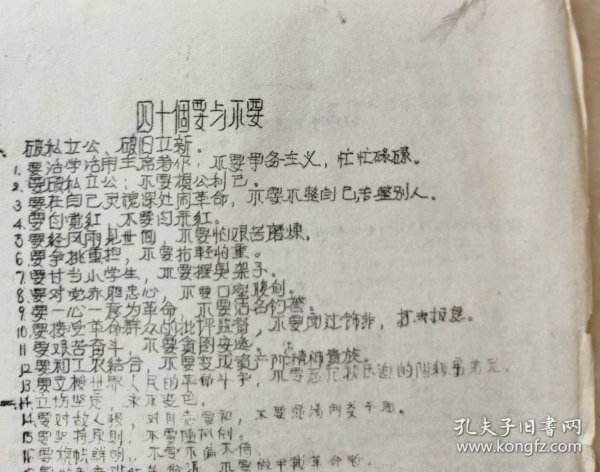 四十個要与不要
破私立公、破旧立新。
1.要活学活用主席著作，不要事务主义，忙忙碌碌。
2.要破私立公，不要损公利己。
3.要在自己灵魂深处闹革命，不要不整自己专整别人。
4.要白党红，不要闷黑红。
5要经风雨见世面，不要怕艰苦磨炼，
6.要争挑重担，不要拈轻怕重。
7.要甘当小学生，不要摆臭架子。
8.要对党赤胆忠心，不要口密腹剑。
9.要一心一意为革命，不要沽名钓誉。
10.要接受革命群众的批评监督，不要闻过饰非，打击报复。
11要艰苦奋斗，不要贪图安逸。
12要和工农结合，不要变成资产阶精神貴族。
13.要支援世界人民的革命斗争，不要忘记被压迫的阶级
立场坚定，永不变色。
14.要对敌人狠，对同志要和，不要混淆两类矛盾。
15要坚持原则，不要
16要旗帜鲜明，不要不偏不倚。
不要做半截革命者
孔夫子旧书网
book.kongfz.com